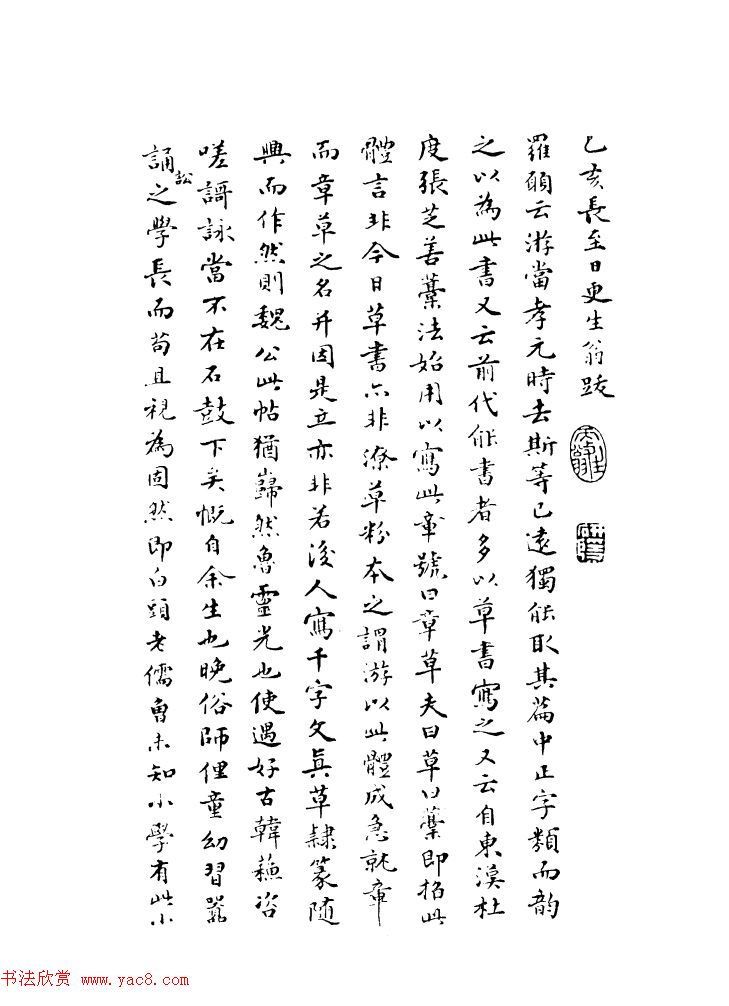 乙亥長至日更生翁跋
羅願云游當孝元時去斯等已遠獨能取其篇中正字類而韵
之以為此書又云前代能書者多以草書寫之又云自東漢杜
度張芝善藁法始用以寫此章號曰章草夫曰草曰藁即指此
體言非今日草書亦非潦草粉本之謂游以此體成急就章
而章草之名并因是立亦非若後人寫千字文真草隸篆隨
興而作然則魏公此帖猶巋然魯靈光也使遇好古韓蘓咨
嗟謌詠當不在石鼓下矣慨自余生也晚俗師俚童幼習
誦訟之學長而苟且視為固然即白頭老儒曾未知小學有此小
书法欣赏 www.yac8.com